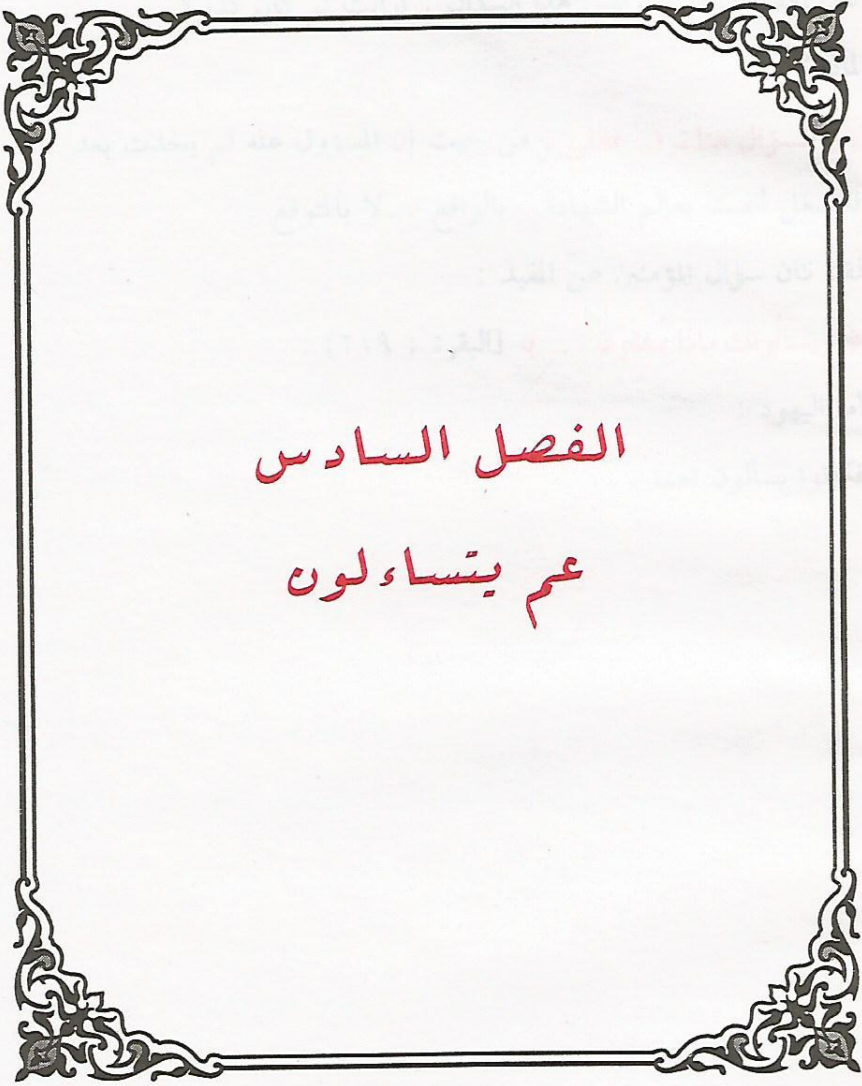 الفصل السادس
عم يتساءلون